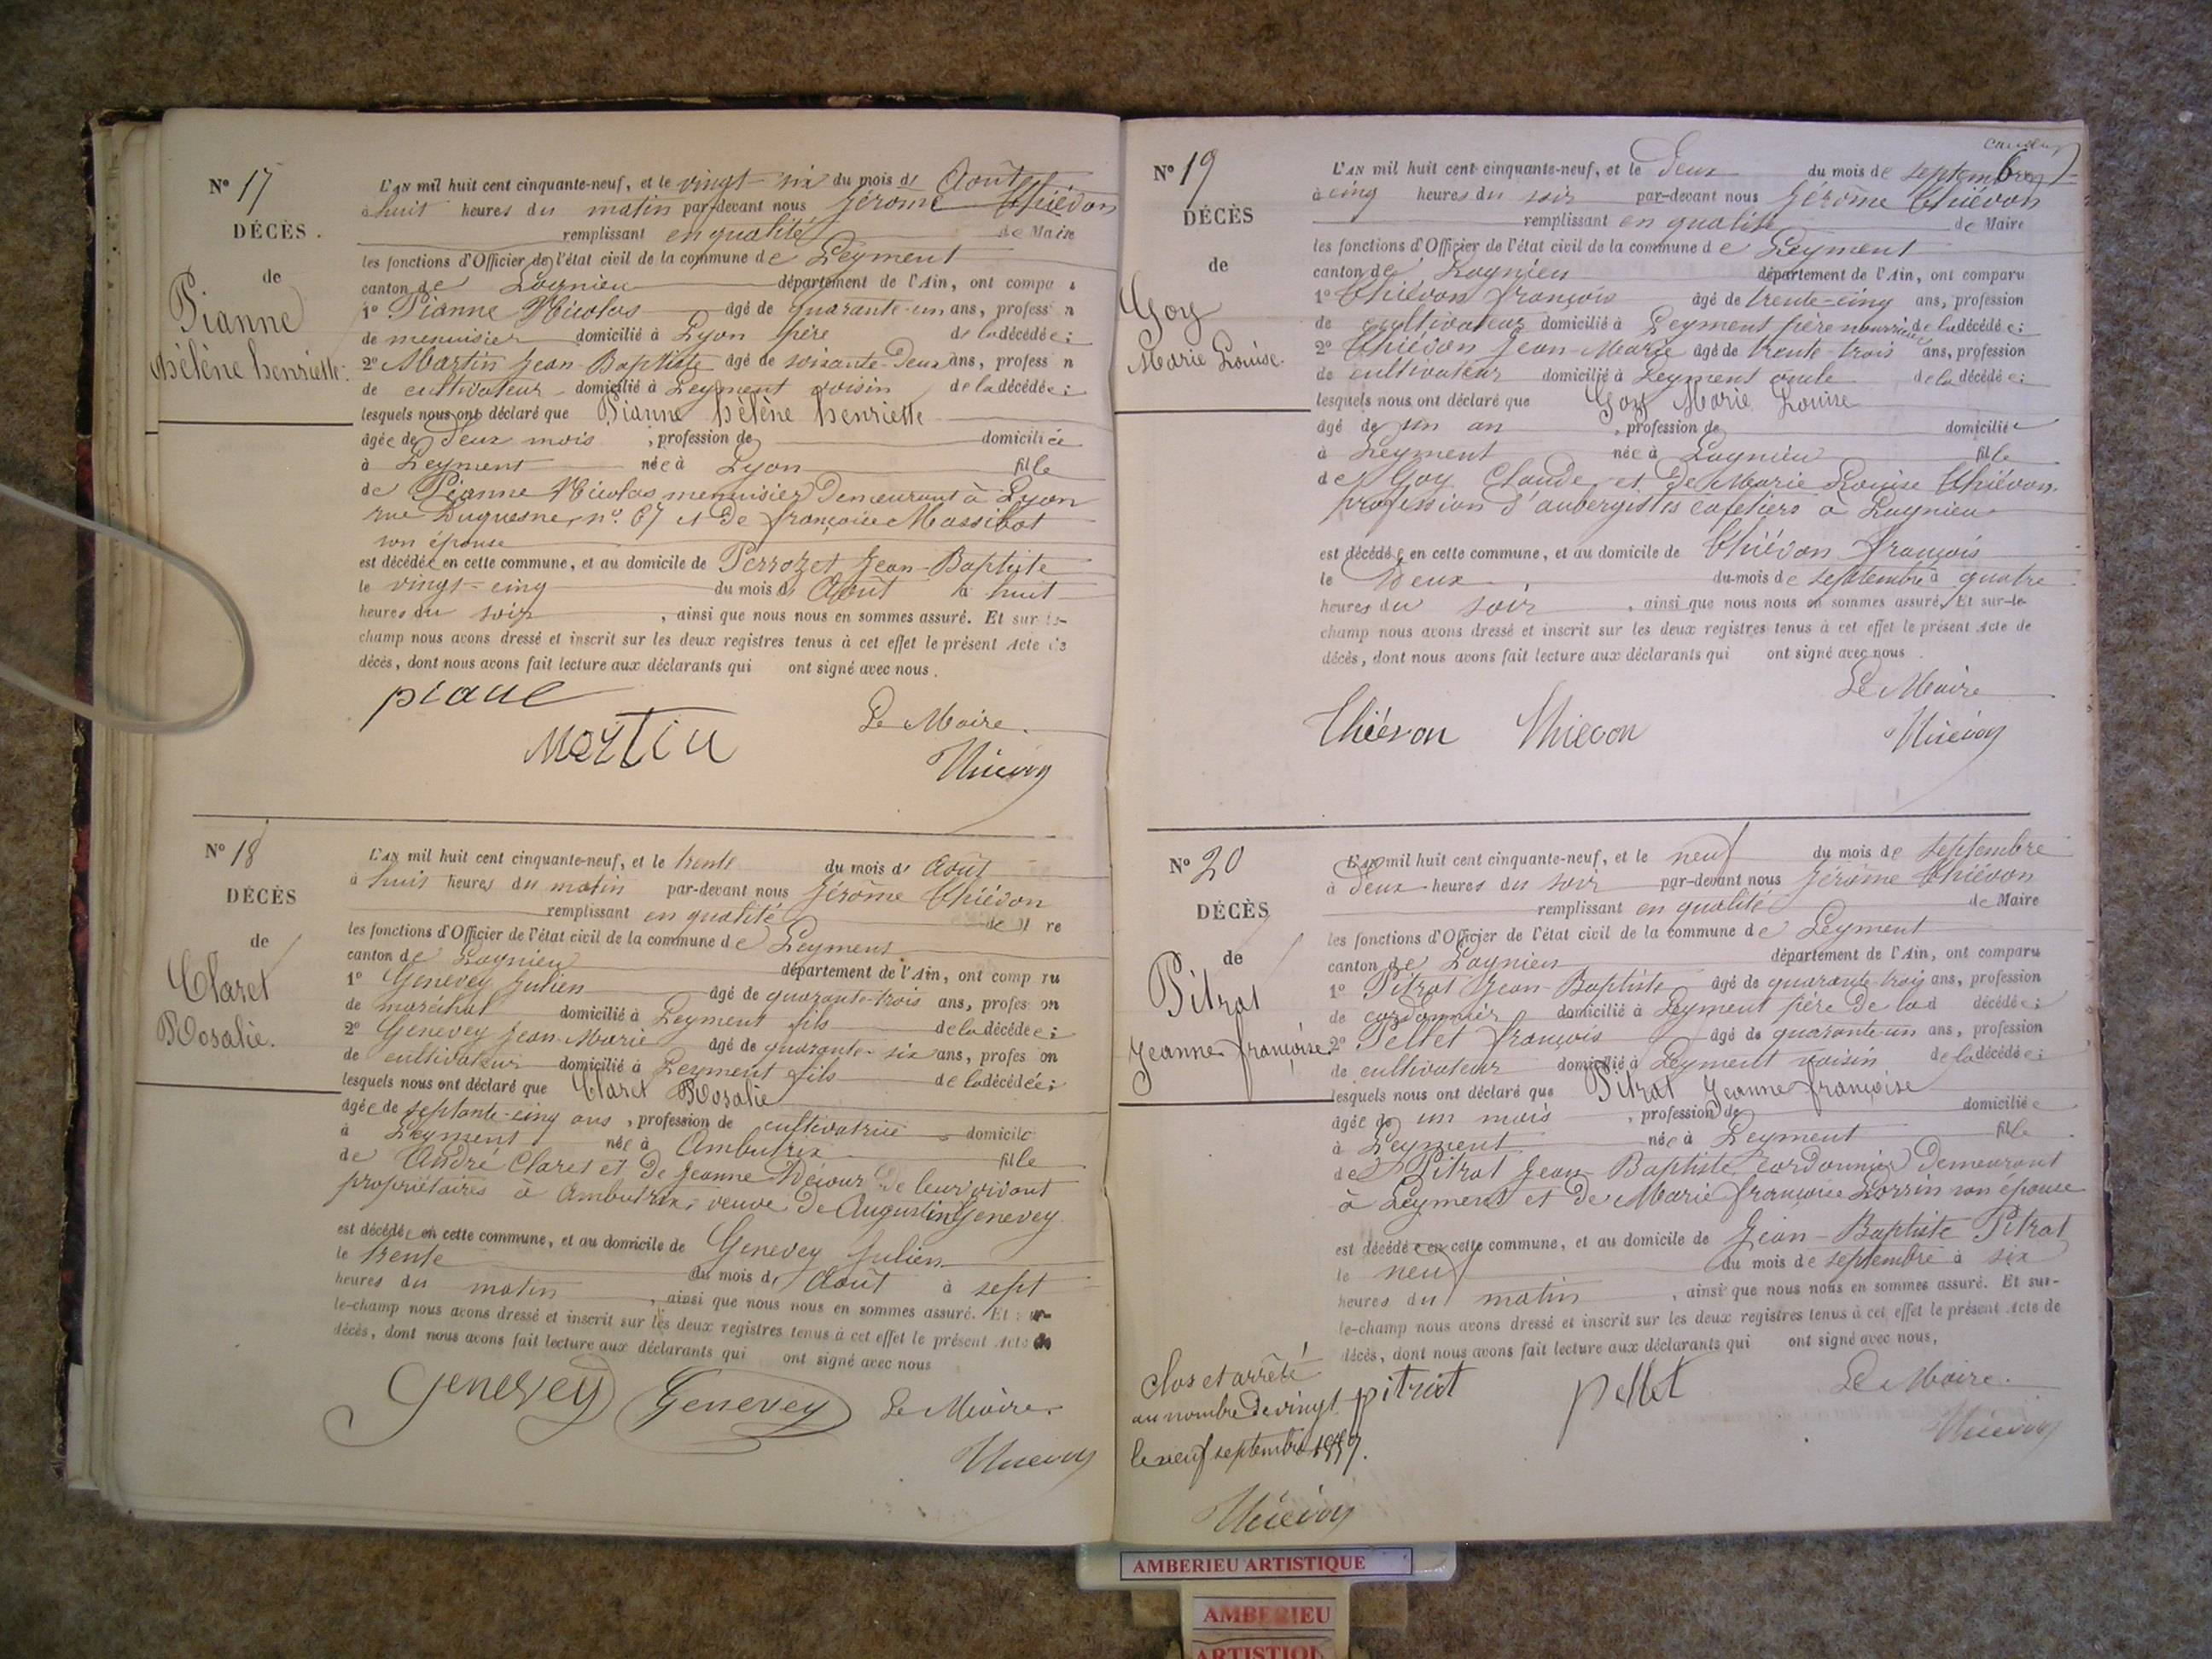 N° 17
DÉCÈS.
de
Pianne
hélène henriette.
L'AN mil huit cent cinquante-neuf, et le vingt-six du mois d' Août
à huit heures du matin par-devant nous Jérôme Thiévon
remplissant en qualité de Maire
les fonctions d'Officier de l'état civil de la commune de Leyment
canton de Lagnieu département de l'Ain, ont compa
1° Pianne Nicolas âgé de quarante-un ans, profess n
de menuisier domicilié à Lyon père de la décédée;
2° Martin Jean-Baptiste âgé de soixante-deux ans, profess n
de cultivateur domicilié à Leyment voisin de la décédée;
lesquels nous ont déclaré que Pianne hélène henriette
âgée de deux mois, profession de domiciliée
à Leyment née à Lyon fille
de Pianne Nicolas menuisier demeurant à Lyon
rue Duquesne, n° 67 et de françoise Massibot
son épouse
est décédée en cette commune, et au domicile de Perrozet Jean-Baptiste
le vingt-cinq du mois d' Août à huit
heures du soir, ainsi que nous nous en sommes assuré. Et sur le-
champ nous avons dressé et inscrit sur les deux registres tenus à cet effet le présent Acte de
décès, dont nous avons fait lecture aux déclarants qui ont signé avec nous.
piane
Martin
Le Maire.
Thiévon
N° 18
DÉCÈS
de
Claret
Rosalie.
L'AN mil huit cent cinquante-neuf, et le trente du mois d' Août
à huit heures du matin par-devant nous Jérôme Thiévon
remplissant en qualité de M re
les fonctions d'Officier de l'état civil de la commune de Leyment
canton de Lagnieu département de l'Ain, ont comp ru
1° Genevey Julien âgé de quarante-trois ans, profes on
de maréchal domicilié à Leyment fils de la décédée;
2° Genevey Jean-Marie âgé de quarante-six ans, profes on
de cultivateur domicilié à Leyment fils de la décédée;
lesquels nous ont déclaré que Claret Rosalie
âgée de septante-cinq ans, profession de cultivatrice domicile
à Leyment née à Ambutrix fille
de André Claret et de Jeanne de leur vivant
propriétaires à Ambutrix; veuve de Augustin Genevey
est décédée en cette commune, et au domicile de Genevey Julien
le trente du mois d' Août à sept
heures du matin, ainsi que nous nous en sommes assuré. Et sur-
le-champ nous avons dressé et inscrit sur les deux registres tenus à cet effet le présent Acte de
décès, dont nous avons fait lecture aux déclarants qui ont signé avec nous
Genevey Genevey Le Maire.
Thiévon
N° 19
DÉCÈS
de
Goy
Marie Louise.
L'AN mil huit cent cinquante-neuf, et le deux du mois de septembre
à cinq heures du soir par-devant nous Jérôme Thiévon
remplissant en qualité de Maire
les fonctions d'Officier de l'état civil de la commune de Leyment
canton de Lagnieu département de l'Ain, ont comparu
1° Thiévon françois âgé de trente-cinq ans, profession
de cultivateur domicilié à Leyment père nourricier de la décédée;
2° Thiévon Jean-Marie âgé de trente-trois ans, profession
de cultivateur domicilié à Leyment oncle de la décédée;
lesquels nous ont déclaré que Goy Marie Louise
âgé de un an, profession de domiciliée
à Leyment née à Lagnieu fille
de Goy Claude et de Marie Louise Thiévon
profession d'aubergistes cafetiers à Lagnieu
est décédée en cette commune, et au domicile de Thiévon françois
le deux du mois de septembre à quatre
heures du soir, ainsi que nous nous en sommes assuré. Et sur-le-
champ nous avons dressé et inscrit sur les deux registres tenus à cet effet le présent Acte de
décès, dont nous avons fait lecture aux déclarants qui ont signé avec nous.
Le Maire
Thiévon Thievon Thiévon
N° 20
DÉCÈS
de
Pitrat
Jeanne françoise.
L'AN mil huit cent cinquante-neuf, et le neuf du mois de septembre
à deux heures du soir par-devant nous Jérôme Thiévon
remplissant en qualité de Maire
les fonctions d'Officier de l'état civil de la commune de Leyment
canton de Lagnieu département de l'Ain, ont comparu
1° Pitrat Jean-Baptiste âgé de quarante-trois ans, profession
de cordonnier domicilié à Leyment père de la d décédée;
2° Pellet françois âgé de quarante-un ans, profession
de cultivateur domicilié à Leyment voisin de la décédée;
lesquels nous ont déclaré que Pitrat Jeanne françoise
âgée de un mois, profession de domiciliée
à Leyment née à Leyment fille
de Pitrat Jean-Baptiste cordonnier demeurant
à Leyment et de Marie françoise Lorrin son épouse
est décédée en cette commune, et au domicile de Jean-Baptiste Pitrat
le neuf du mois de septembre à six
heures du matin, ainsi que nous nous en sommes assuré. Et sur-
le-champ nous avons dressé et inscrit sur les deux registres tenus à cet effet le présent Acte de
décès, dont nous avons fait lecture aux déclarants qui ont signé avec nous,
pitrat pellet Le Maire.
Thiévon
Clos et arrêté
au nombre de vingt
le neuf septembre 1859.
Thiévon
AMBERIEU ARTISTIQUE
AMBERIEU
ARTISTIQU